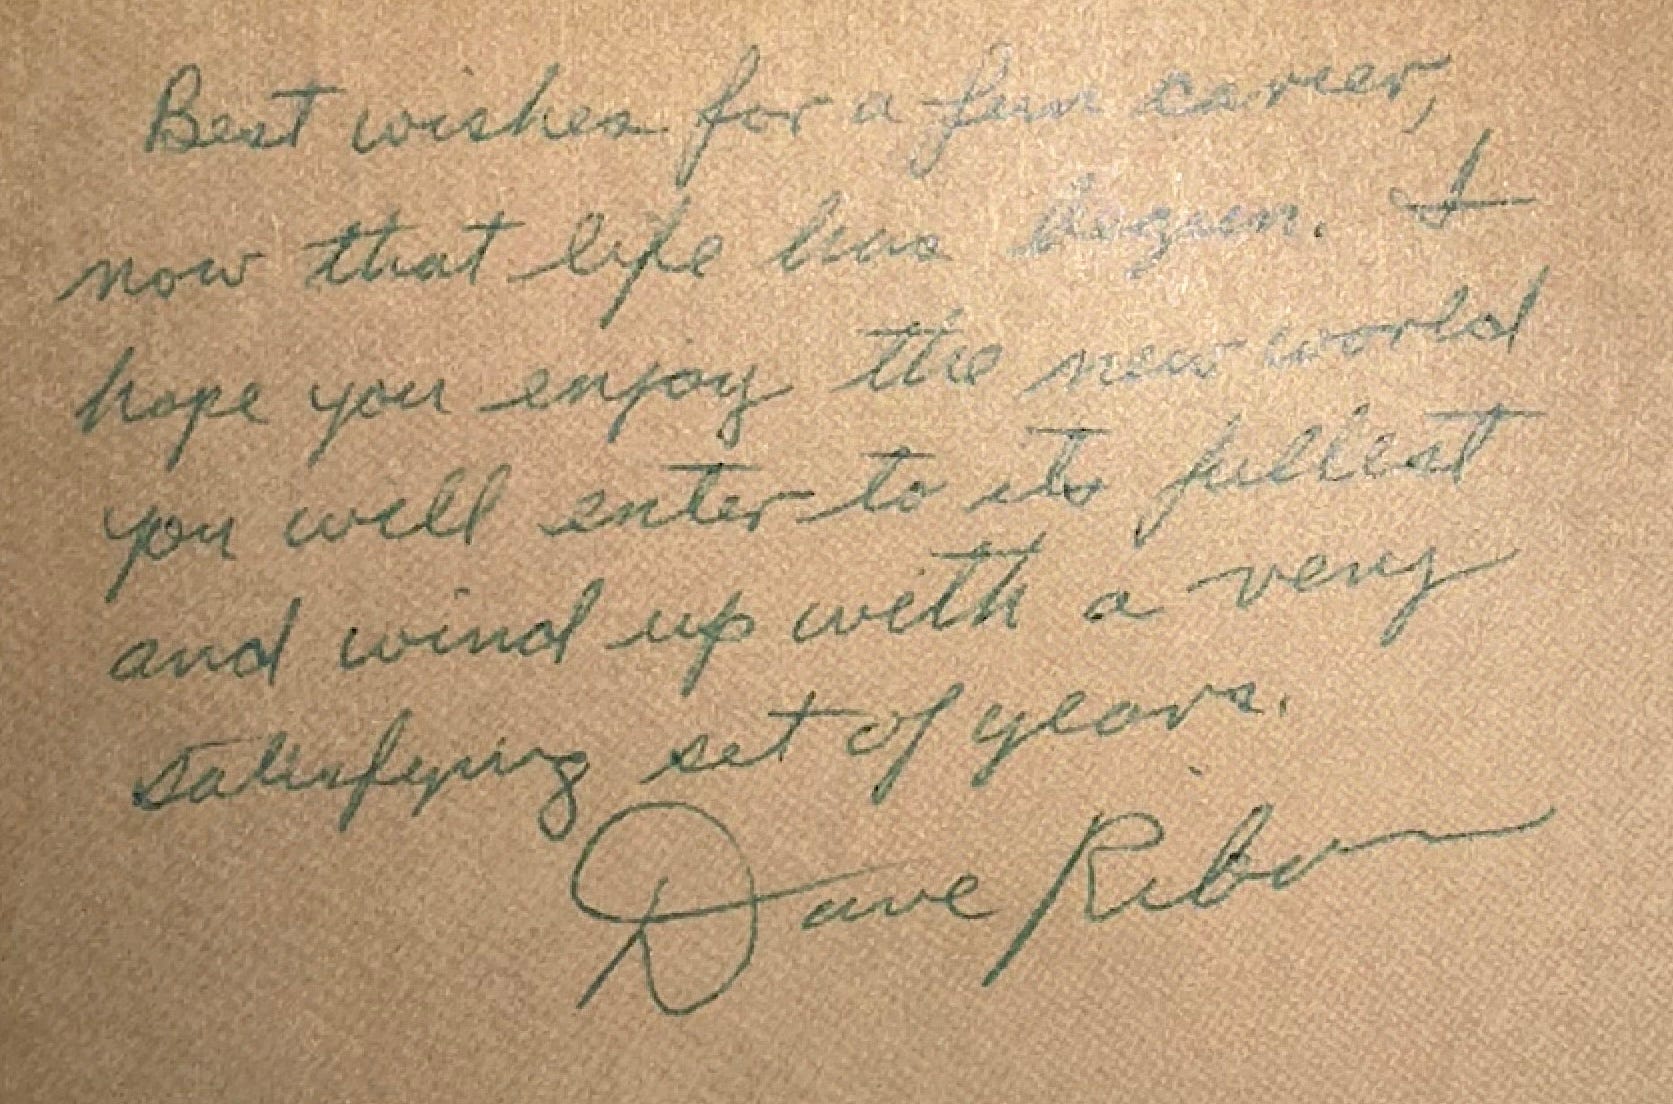 Best wishes for a fun carier,
now that life has begun. I
hope you enjoy the new world
you will enter to its fullest
and wind up with a very
satisfying set of years.
Dave